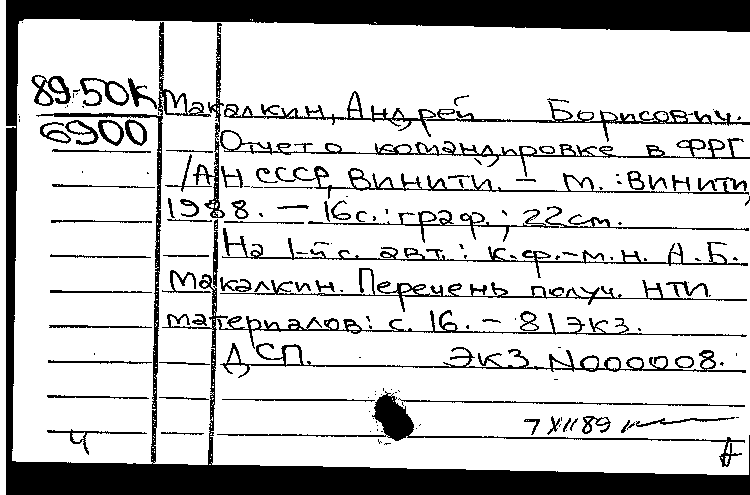 89-50К Макалкин, Андрей Борисович.
6900 Отчет о командировке в ФРГ
/АН СССР, ВИНИТИ. – М. : ВИНИТИ,
1988. – 16 с. : граф. ; 22 см.
На 1-й с. авт. : к.ф.-м.н. А.Б.
Макалкин. Перечень получ. НТИ
материалов: с. 16. – 81 экз.
ДСП. Экз. N000008.
7 XII 89
Ч А